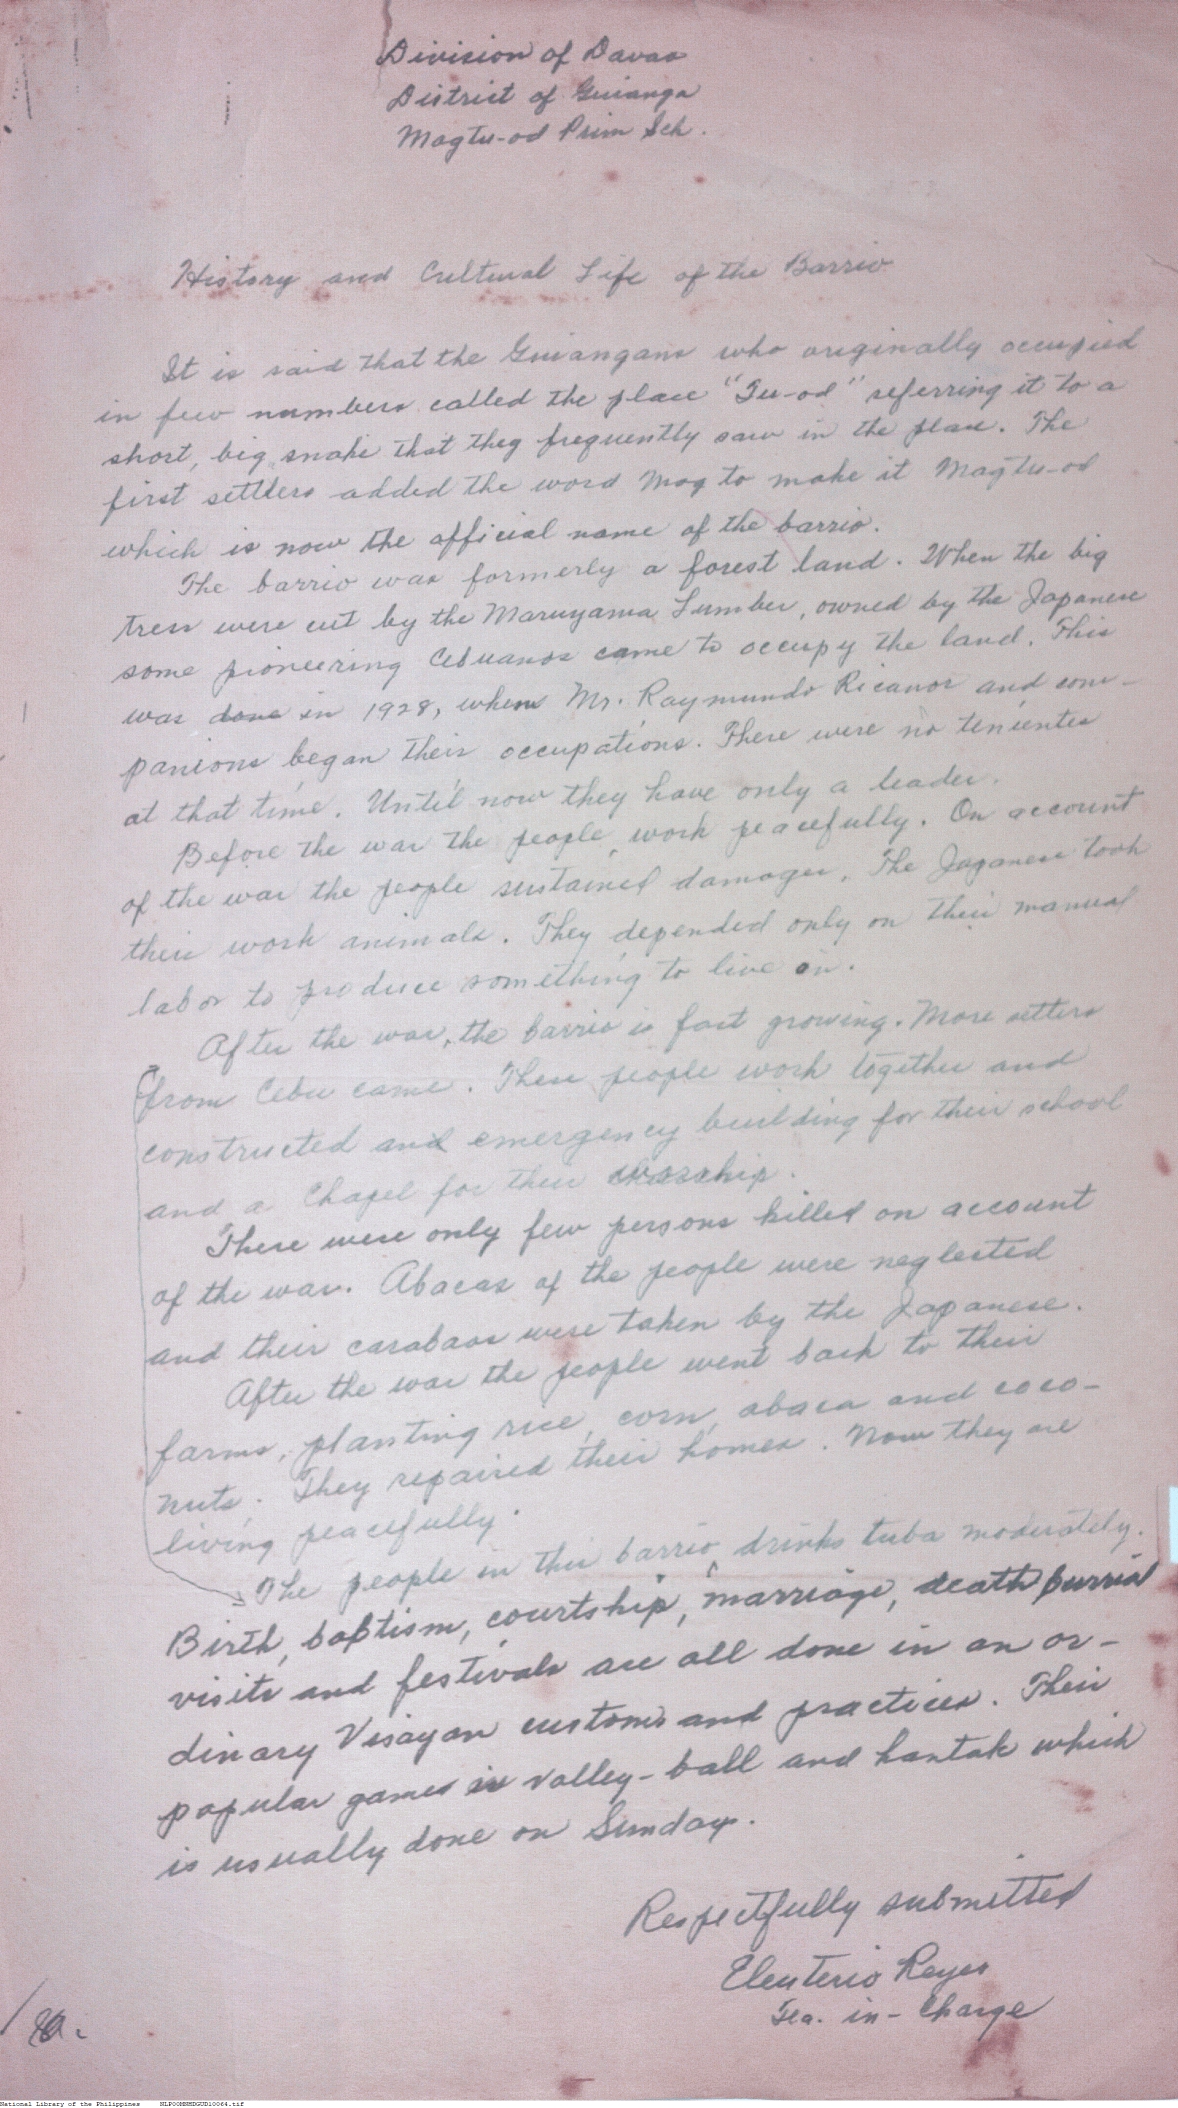 Division of Davao
District of Guianga
Magtu-od Prim Sch.
History and Cultural Life of the Barrio
It is said that the Guiangans who originally occupied
in few numbers called the place "Tu-od" referring it to a
short, big snake that they frequently saw in the place. The
first settlers added the word Mag to make it Magtu-od
which is now the official name of the barrio.
The barrio was formerly a forest land. When the big
trees were cut by the Maruyama Lumber, owned by the Japanese
some pioneering Cebuanos came to occupy the land. This
was done in 1928, when Mr. Raymundo Ricanor and com-
panions began their occupations. There were no tenientes
at that time. Until now they have only a leader.
Before the war the people work peacefully. On account
of the war the people sustained damages. The Japanese took
their work animals. They depended only on their manual
labor to produce something to live on.
After the war, the barrio is fast growing. More settlers
from Cebu came. These people work together and
constructed and emergency building for their school
and a Chapel for their worship.
There were only few persons killed on account
of the war. Abacas of the people were neglected
and their carabaos were taken by the Japanese.
After the war the people went back to their
farms, planting rice, corn, abaca and coco-
nuts. They repaired their homes. Now they are
living peacefully.
The people in this barrio drinks tuba moderately.
Birth, baptism, courtship, marriage, death burrial
visits and festivals are all done in an or-
dinary Visayan customs and practices. Their
popular games is valley-ball and hantak which
is usually done on Sunday.
Respectfully submitted
Eleuterio Reyes
Tea. in-Charge
National Library of the Philippines NLPOOMNHDGUD10064.tif